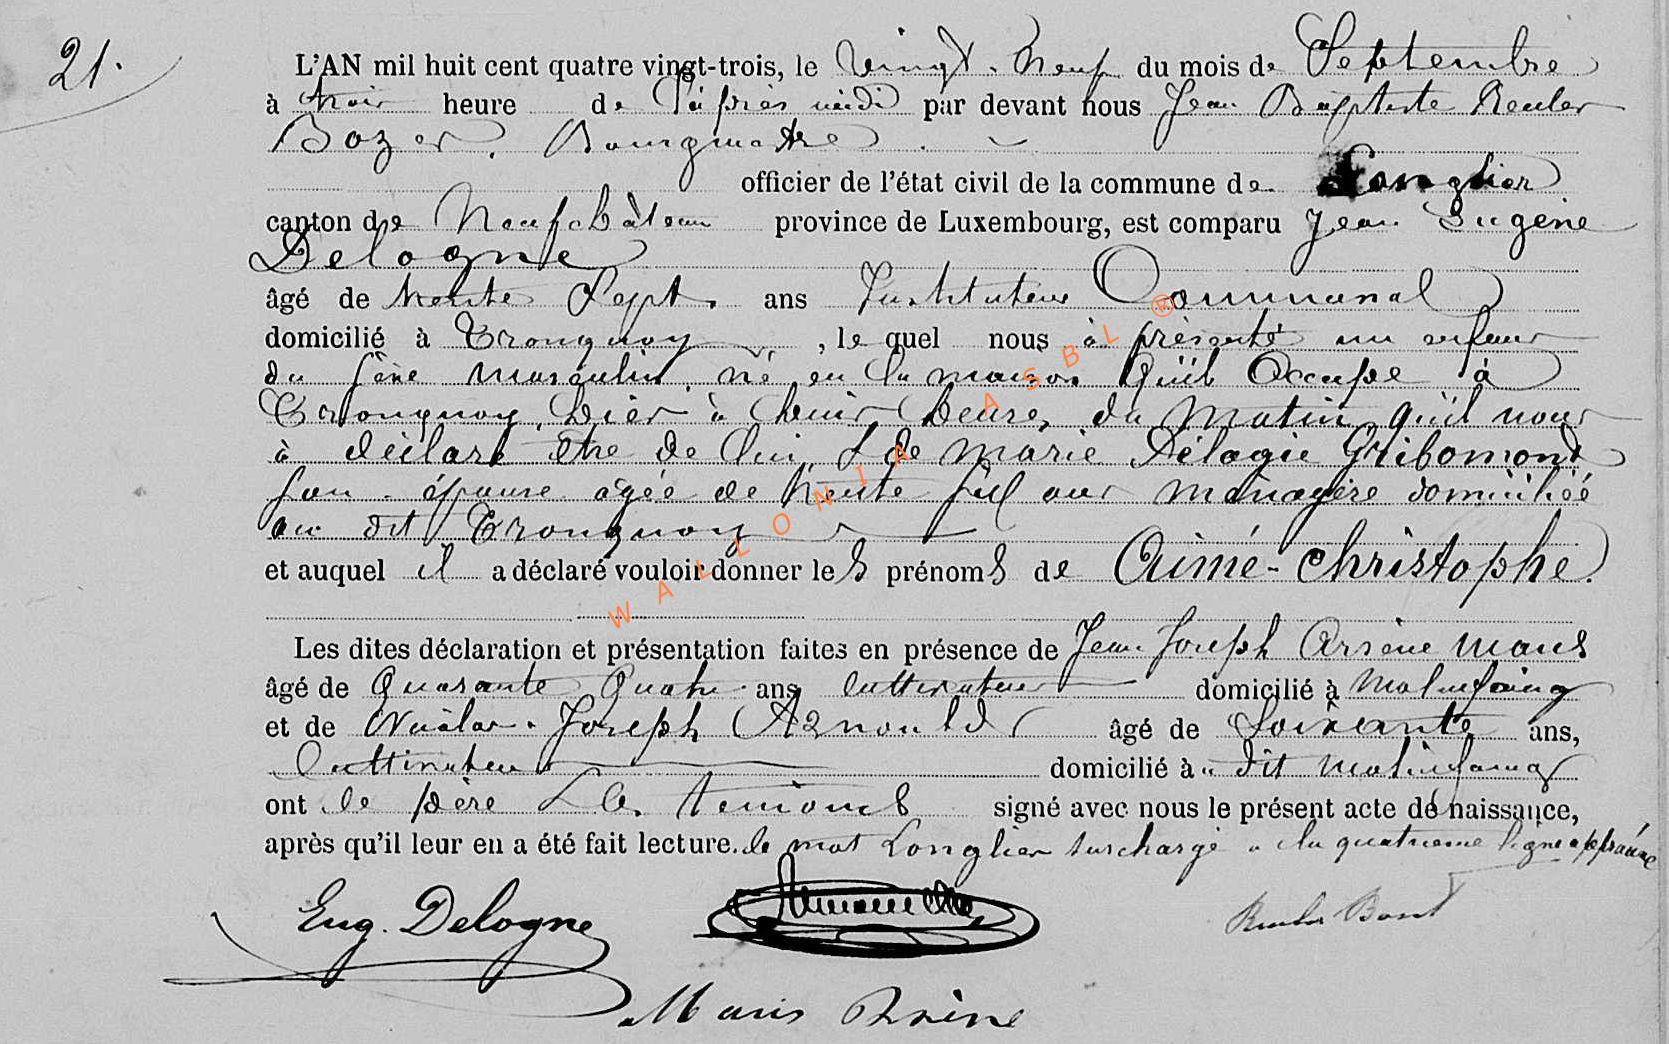 21.
L'AN mil huit cent quatre vingt-trois, le vingt-neuf du mois de Septembre
à trois heure de l'après midi par devant nous Jean Baptiste Reuler
Bozer, Bourgmestre
officier de l'état civil de la commune de Longlier
canton de Neufchâteau province de Luxembourg, est comparu Jean Eugène
Delogne
âgé de trente Sept ans Instituteur Communal
domicilié à Tronquoy, le quel nous à présenté un enfant
du sèxe masculin, né en la maison qu'il Occupe à
Tronquoy, hier à huit heures du Matin qu'il nous
à déclaré être de lui, & de Marie Pélagie Gribomont
son épouse agée de trente six ans ménagère domiciliée
au dit Tronquoy
et auquel il a déclaré vouloir donner les prénoms de Aimé-Christophe.
Les dites déclaration et présentation faites en présence de Jean Joseph Arsène Maus
âgé de Quarante Quatre ans cultivateur domicilié à Molinfaing
et de Nicolas Joseph Arnould âgé de Soixante ans,
Cultivateur domicilié à dit Molinfaing
ont le père & les temoins signé avec nous le présent acte de naissance,
après qu'il leur en a été fait lecture. le mot Longlier surchargé à la quatrieme ligne approuvé
Eug. Delogne
Maus Arsène
WALLONIA ASBL ®